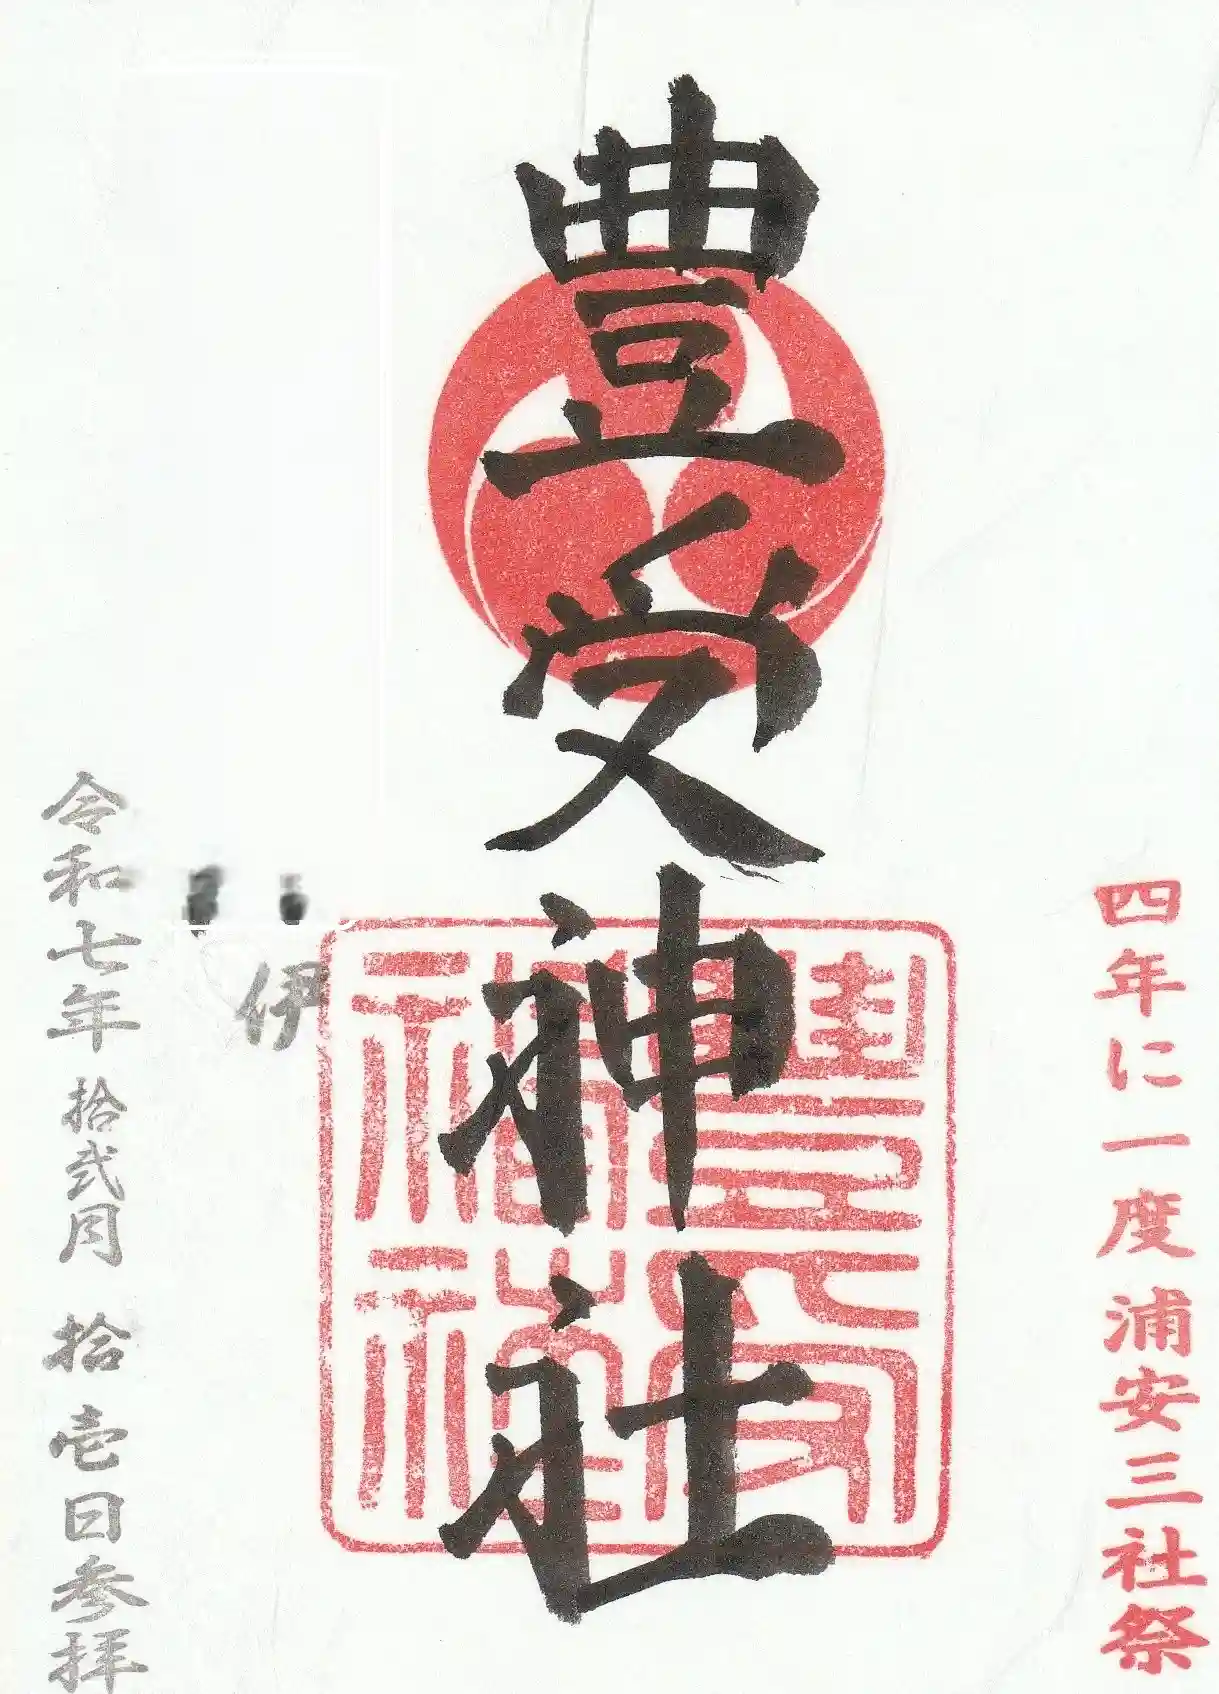 四年に一度浦安三社祭
豊受神社
豊受神社
伊
令和七年拾弐月拾壱日参拝